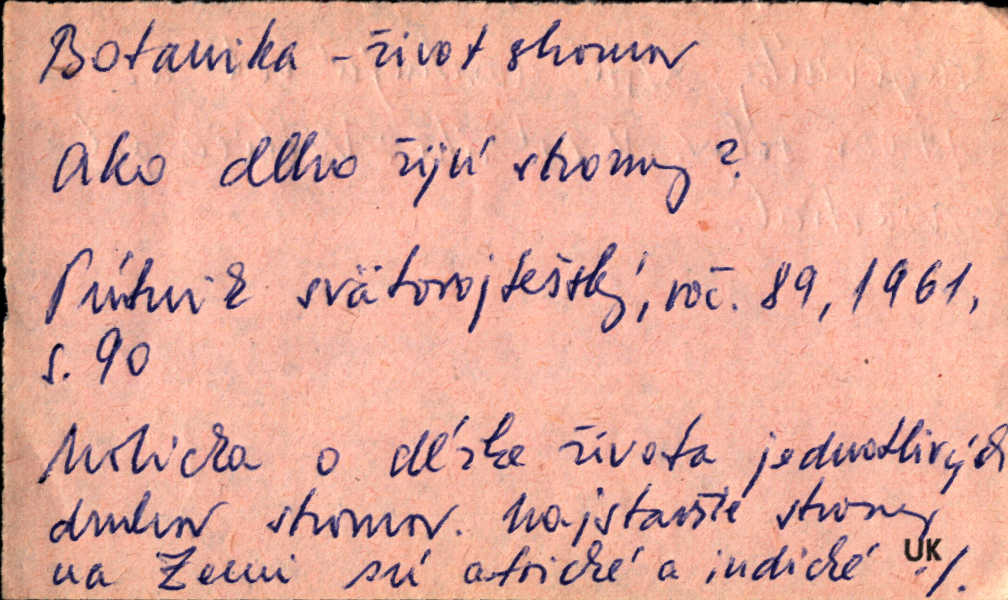 Botanika - život stromov
Ako dlho žijú stromy?
Pútnik svätovojtešský, roč. 89, 1961,
s. 90
Notička o dĺžke života jednotlivých
druhov stromov. Najstaršie stromy
na Zemi sú africké a indické ./.
UK